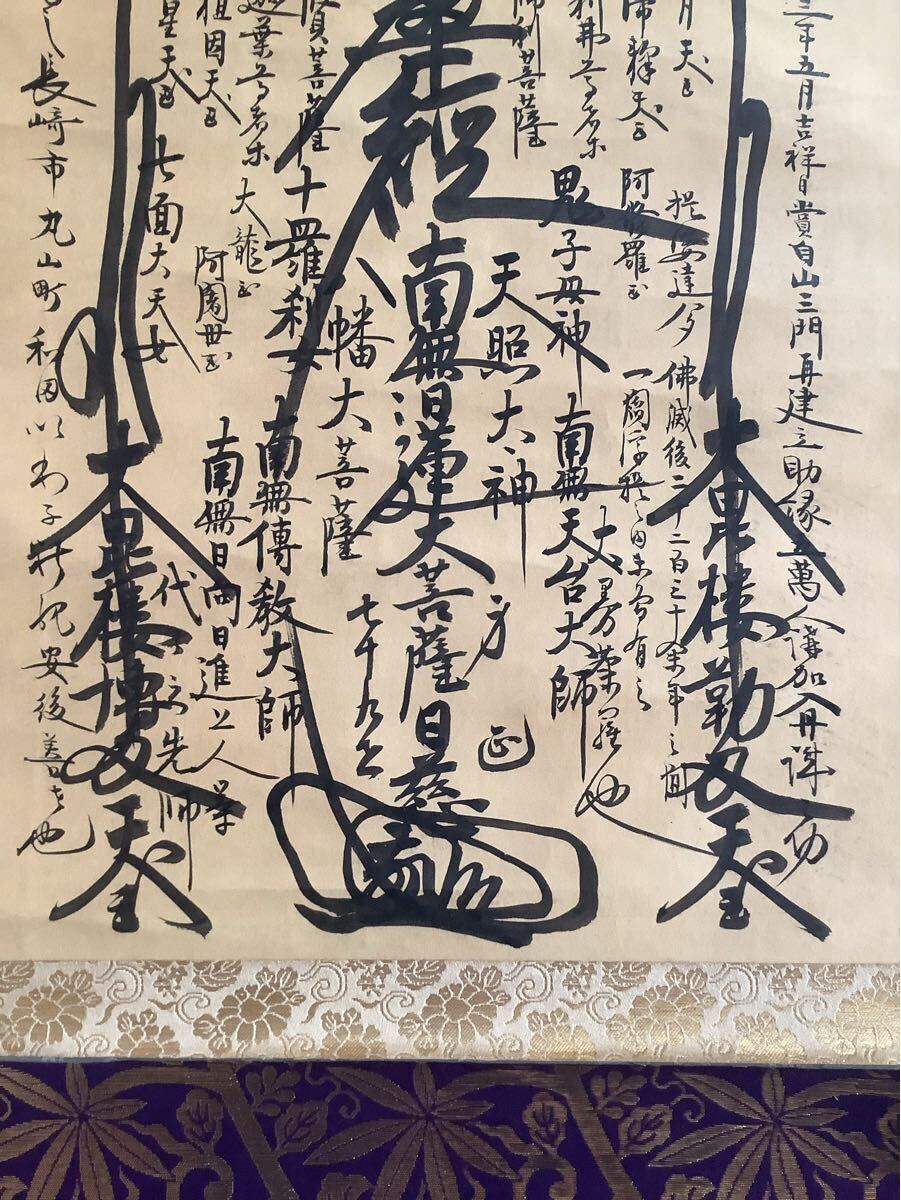 三年五月吉祥日賞自山三門再建立助縁五萬人講加入丹誠
月天王
帝釋天王
阿修羅王
提婆達多
佛滅後二千二百三十余年之間
一閻浮提之内未曾有之
大曼荼羅也
大毘楼勒叉天王
利弗尊者等
鬼子母神
南無天台大師
師利菩薩
天照大神
華經
南無日蓮大菩薩
日慈
七十九
八幡大菩薩
賢菩薩
十羅刹女
南無傳教大師
迦葉尊者等
大龍王
阿闍世王
南無日向日進上人
代々
先師
祖因天王
星天王
七面大天女
大毘楼博叉天王
長崎市丸山町和田
安後善
也